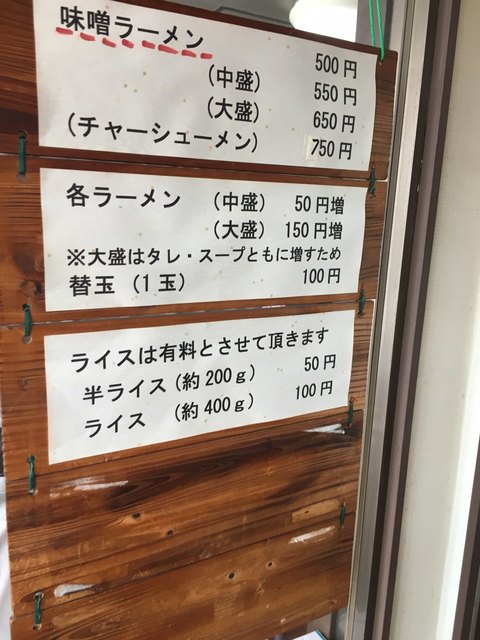 味噌ラーメン 500円
(中盛) 550円
(大盛) 650円
(チャーシューメン) 750円
各ラーメン (中盛) 50円増
(大盛) 150円増
※大盛はタレ・スープともに増すため
替玉(1玉) 100円
ライスは有料とさせて頂きます
半ライス(約200g) 50円
ライス (約400g) 100円